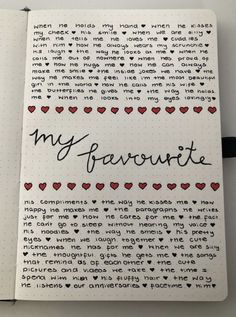 when he holds my hand ♥ when he kisses
my cheek ♥ his smile ♥ when we are silly ♥
when he tells me he loves me ♥ cuddles
with him ♥ how he always wears my scrunchie ♥
his laugh ♥ the way he looks at me ♥ when he
calls me out of nowhere ♥ when he's proud of
me ♥ how he hugs me ♥ how he can always
make me smile ♥ the inside jokes we have ♥ the
way he makes me feel like i'm the most beautiful
girl in the world ♥ how he calls me his wife ♥
the butterflies he gives me ♥ the way he holds
me ♥ when he looks into my eyes lovingly
my favourite
his compliments ♥ the way he kisses me ♥ how
happy he makes me ♥ the paragraphs he writes
just for me ♥ how he cares for me ♥ the fact
he can't go to sleep without hearing my voice ♥
his noodles ♥ the way he smells ♥ his pretty
eyes ♥ when we laugh together ♥ the cute
nicknames he has for me ♥ when we are silly
♥ the thoughtful gifts he gets me ♥ the songs
that remind us of each other ♥ the cute
pictures and videos we take ♥ the time i
spend with him ♥ his fluffy hair ♥ the way
he listens ♥ our anniversaries ♥ facetime ♥ him ♥